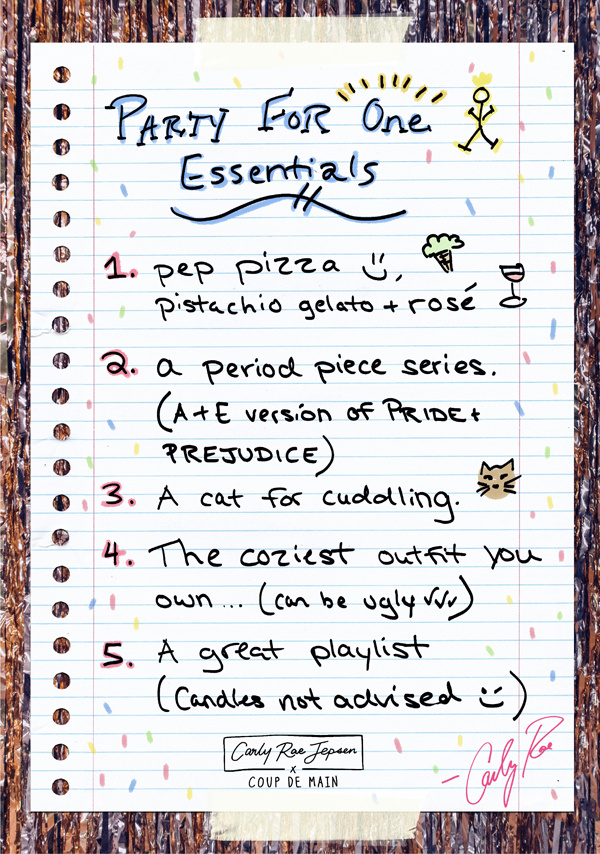 PARTY FOR One
Essentials
1. pep pizza :),
pistachio gelato + rosé
2. a period piece series.
(A+E version of PRIDE+
PREJUDICE)
3. A cat for cuddling.
4. The coziest outfit you
own... (can be ugly √√√)
5. A great playlist
(Candles not advised :))
Carly Rae Jepsen
x
COUP DE MAIN
- Carly Rae